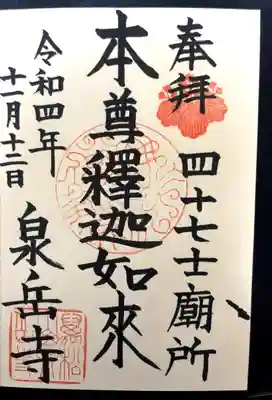 奉拝 四十七士廟所
本尊釋迦如來
令和四年
十一月十二日
泉岳寺